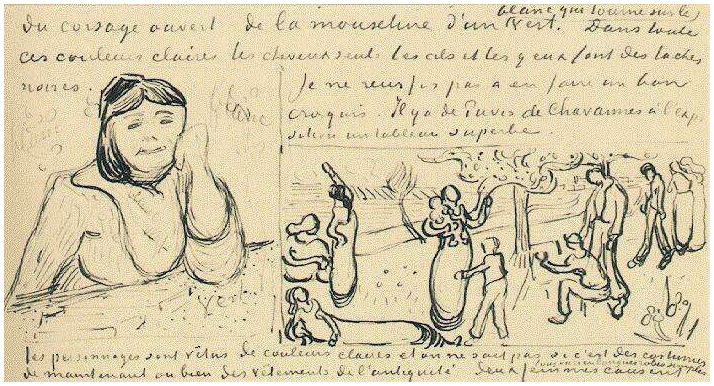 blanc qui tourne sur le
du corsage ouvert de la mousseline d'un vert. Dans toute
ces couleurs claires les cheveux seuls les cils et les yeux font des taches
noires. Je ne reussis pas a en faire un bon
croquis. Il y a de Puvis de Chavannes à l'exp
sition un tableau superbe.
blanc
vert
les personnages sont vêtus de couleurs claires et on ne sait pas si c'est des costumes
de maintenant ou bien des vêtements de l'antiquité deux femmes causent